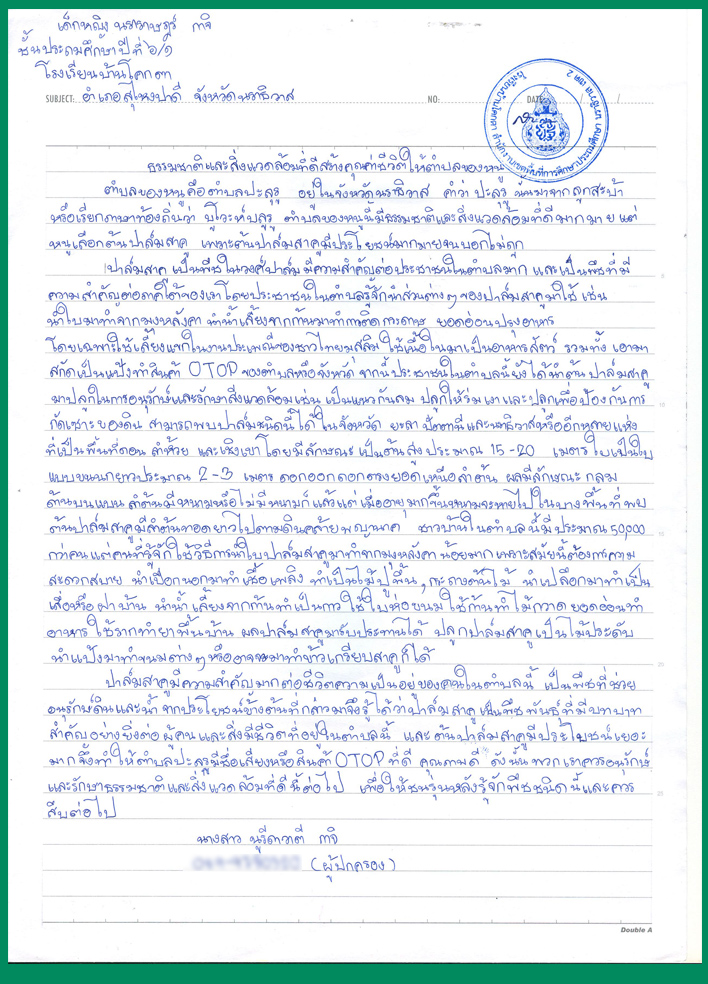 เด็กหญิง
ชั้นประถมศึกษาปีที่ ๖/๑
โรงเรียนบ้านโคกตา
SUBJECT: อำเภอสุไหงปาดี จังหวัดนราธิวาส NO: DATE: / /
ธรรมชาติและสิ่งแวดล้อมที่ดีสร้างคุณค่าชีวิตให้ตำบลของหนู
ตำบลของหนูคือตำบลปะลุรู อยู่ในจังหวัดนราธิวาส คำว่า ปะลุรู นั้นมาจากลูกสะบ้า
หรือเรียกภาษาท้องถิ่นว่า บูโวะห์บลูรู ตำบลของหนูนี้มีธรรมชาติและสิ่งแวดล้อมที่ดีมากมาย แต่
หนูเลือกต้นปาล์มสาคู เพราะต้นปาล์มสาคูมีประโยชน์มากมายจนบอกไม่ถูก
ปาล์มสาคู เป็นพืชในวงศ์ปาล์ม มีความสำคัญต่อประชาชนในตำบลมาก และเป็นพืชที่มี
ความสำคัญต่อภาคใต้ของเรา โดยประชาชนในตำบลรู้จักนำส่วนต่างๆ ของปาล์มสาคูมาใช้ เช่น
นำใบมาทำจากมุงหลังคา นำน้ำเลี้ยงจากก้านมาทำกาวติดกระดาษ ยอดอ่อนปรุงอาหาร
โดยเฉพาะใช้เลี้ยงแขกในงานประเพณีของชาวไทยมุสลิม ใช้เนื้อในมาเป็นอาหารสัตว์ รวมทั้ง เอามา
สกัดเป็นแป้งทำสินค้า OTOP ของตำบลหรือจังหวัด จากนี้ประชาชนในตำบลนี้ยังได้นำต้นปาล์มสาคู
มาปลูกในการอนุรักษ์และรักษาสิ่งแวดล้อม เช่น เป็นแนวกันลม ปลูกให้ร่มเงา และปลูกเพื่อป้องกันการ
กัดเซาะของดิน สามารถพบปาล์มชนิดนี้ได้ในจังหวัด ยะลา ปัตตานี และนราธิวาสหรืออีกหลายแห่ง
ที่เป็นพื้นที่ดอน ลำห้วย และเชิงเขา โดยมีลักษณะเป็นต้นสูงประมาณ 15 -20 เมตร ใบเป็นใบ
แบบขนนกยาวประมาณ 2-3 เมตร ดอกออกดอกตรงยอดเหนือลำต้น ผลมีลักษณะกลม
ด้านบนแบน ลำต้นมีหนามหรือไม่มีหนามก็แล้วแต่ เมื่ออายุมากขึ้นหนามจะหายไป ในบางพื้นที่พบ
ต้นปาล์มสาคูมีลำต้นทอดยาวไปตามดินคล้ายพญานาค ชาวบ้านในตำบลนี้มีประมาณ 50,000
กว่าคน แต่คนที่รู้จักใช้วิธีการนำใบปาล์มสาคูมาทำจากมุงหลังคา น้อยมาก เพราะสมัยนี้ต้องการความ
สะดวกสบาย นำเปลือกนอกมาทำเชื้อเพลิง ทำเป็นไม้ปูพื้น, กระถางต้นไม้ นำเปลือกมาทำเป็น
เสื่อหรือฝาบ้าน นำน้ำเลี้ยงจากก้านทำเป็นกาว ใช้ใบห่อขนม ใช้ก้านทำไม้กวาด ยอดอ่อนทำ
อาหาร ใช้รากทำยาพื้นบ้าน ผลปาล์มสาคูมารับประทานได้ ปลูกปาล์มสาคูเป็นไม้ประดับ
นำแป้งมาทำขนมต่างๆ หรืออาจจะมาทำข้าวเกรียบสาคูก็ได้
ปาล์มสาคูมีความสำคัญมากต่อชีวิตความเป็นอยู่ของคนในตำบลนี้ เป็นพืชที่ช่วย
อนุรักษ์ดินและน้ำ จากประโยชน์ข้างต้นที่กล่าวมาจึงรู้ได้ว่าปาล์มสาคูเป็นพืชพันธุ์ที่มีบทบาท
สำคัญอย่างยิ่งต่อผู้คนและสิ่งมีชีวิตที่อยู่ในตำบลนี้ และต้นปาล์มสาคูมีประโยชน์เยอะ
มากจึงทำให้ตำบลปะลุรูมีชื่อเสียงหรือสินค้า OTOP ที่ดี คุณภาพดี ดังนั้นพวกเราควรอนุรักษ์
และรักษาธรรมชาติและสิ่งแวดล้อมที่ดีนี้ต่อไป เพื่อให้ชนรุ่นหลังรู้จักพืชชนิดนี้และควร
สืบต่อไป
นางสาว
(ผู้ปกครอง)
Double A